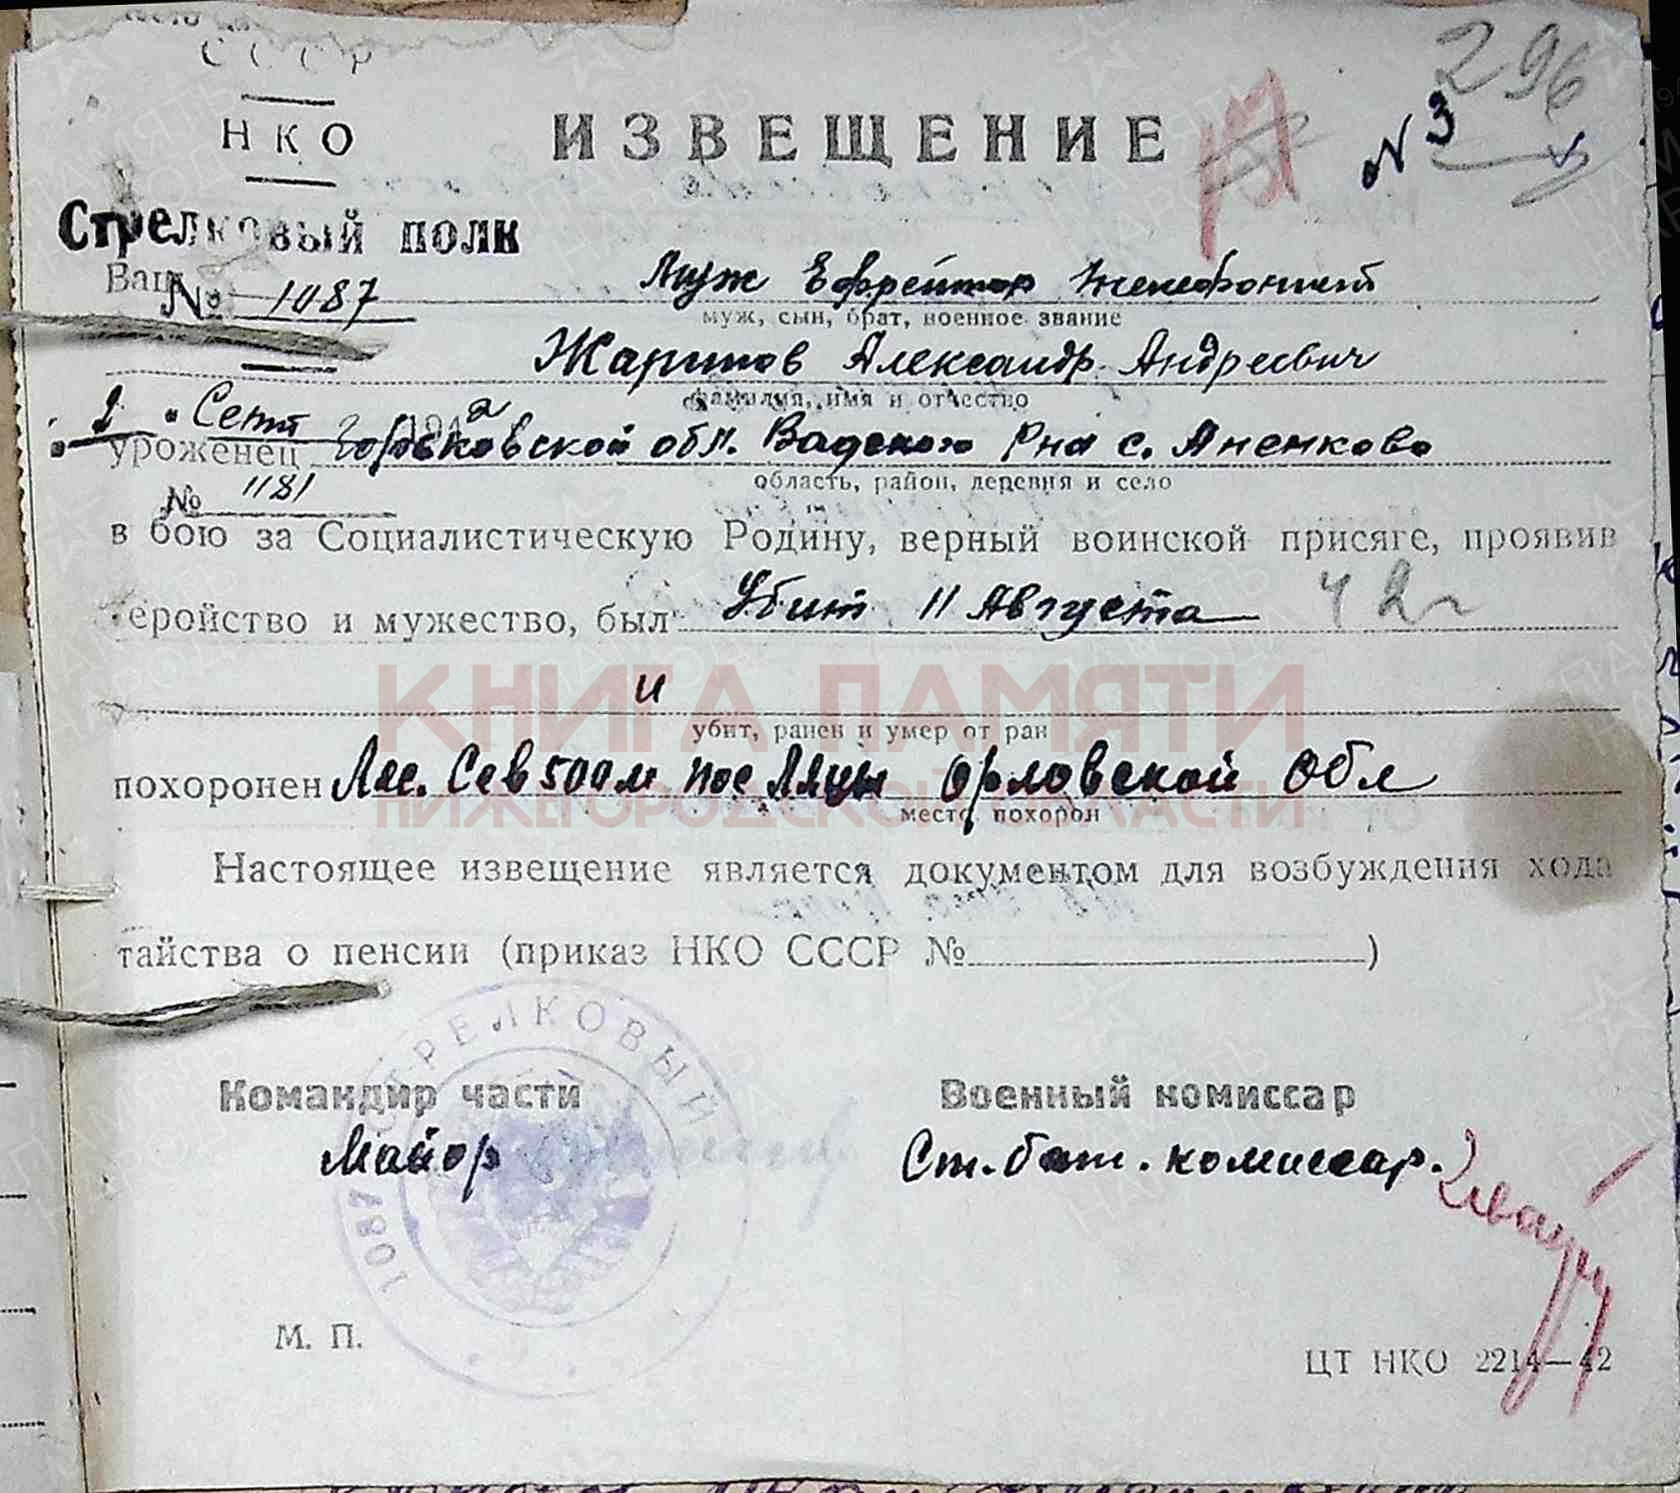 СССР
296
НКО
ИЗВЕЩЕНИЕ
N 3
Стрелковый полк
Ваш Муж Ефрейтор Телефонист
№ 1087
муж, сын, брат, военное звание
Жаритов Александр Андреевич
фамилия, имя и отчество
"2" Сент 1942
уроженец Горьковской обл. Вадского Рна с. Аненково
область, район, деревня и село
№ 1181
в бою за Социалистическую Родину, верный воинской присяге, проявив
геройство и мужество, был Убит 11 Августа 42г
и
убит, ранен и умер от ран
похоронен Лес. Сев 500м пос Ляцы Орловской Обл
место похорон
Настоящее извещение является документом для возбуждения хода
тайства о пенсии (приказ НКО СССР №)
Командир части
Военный комиссар
Майор
Ст. бат. комиссар.
1087 СТРЕЛКОВЫЙ
М. П.
ЦТ НКО 2214—42
КНИГА ПАМЯТИ
НИЖЕГОРОДСКОЙ ОБЛАСТИ